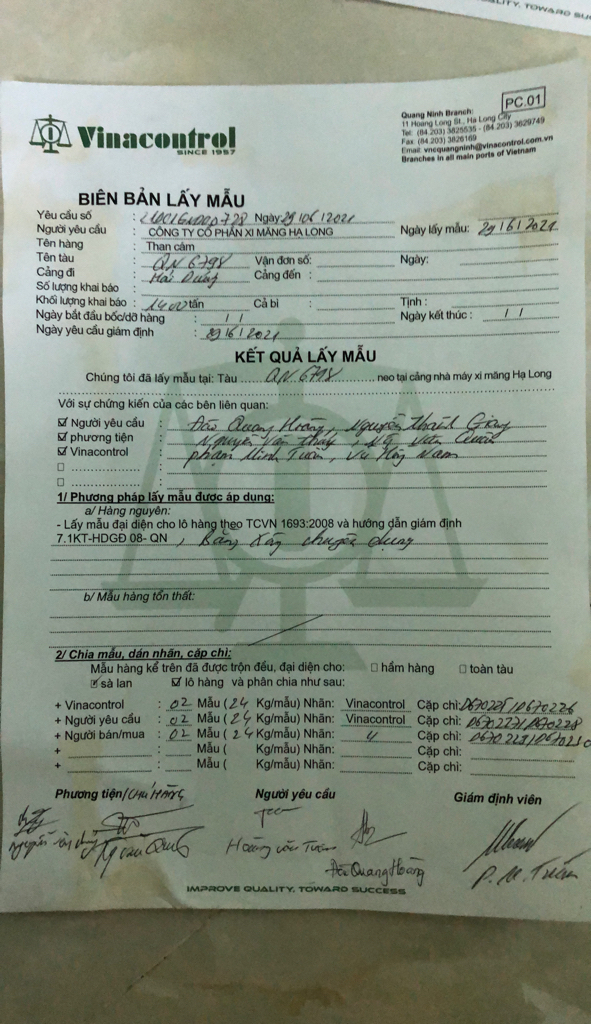 QUALITY, TOWARD SU
PC.01
Vinacontrol
SINCE 1957
Quang Ninh Branch:
11 Hoang Long St., Ha Long City
Tel: (84.203) 3825535 - (84.203) 3829749
Fax: (84.203) 3826169
Email: vncquangninh@vinacontrol.com.vn
Branches in all main ports of Vietnam
BIÊN BẢN LẤY MẪU
Yêu cầu số : Ngày 29/06/2021
Người yêu cầu : CÔNG TY CỔ PHẦN XI MĂNG HẠ LONG Ngày lấy mẫu: 29/6/2021
Tên hàng : Than cám
Tên tàu : QN 6798 Vận đơn số: Ngày:
Cảng đi : Hải Dương Cảng đến :
Số lượng khai báo :
Khối lượng khai báo : 1400 tấn Cả bì : Tịnh :
Ngày bắt đầu bốc/dỡ hàng : / / Ngày kết thúc : / /
Ngày yêu cầu giám định : 29/6/2021
KẾT QUẢ LẤY MẪU
Chúng tôi đã lấy mẫu tại: Tàu QN 6798 neo tại cảng nhà máy xi măng Hạ Long
Với sự chứng kiến của các bên liên quan:
☑ Người yêu cầu : Đào Quang Hoàng, Nguyễn Thành Giang
☑ phương tiện : Nguyễn Văn Văn
☑ Vinacontrol : Phạm Minh Tuấn, Vũ Hồng Nam
☐ :
☐ :
1/ Phương pháp lấy mẫu được áp dụng:
a/ Hàng nguyên:
- Lấy mẫu đại diện cho lô hàng theo TCVN 1693:2008 và hướng dẫn giám định
7.1KT-HDGĐ 08- QN, Bằng Xẻng chuyên dụng
b/ Mẫu hàng tổn thất:
2/ Chia mẫu, dán nhãn, cặp chì:
Mẫu hàng kể trên đã được trộn đều, đại diện cho: ☐ hầm hàng ☐ toàn tàu
☑ sà lan ☑ lô hàng và phân chia như sau:
+ Vinacontrol : 02 Mẫu ( 24 Kg/mẫu) Nhãn: Vinacontrol Cặp chì: D670225/D670226
+ Người yêu cầu : 02 Mẫu ( 24 Kg/mẫu) Nhãn: Vinacontrol Cặp chì: D670227/D670228
+ Người bán/mua : 02 Mẫu ( 24 Kg/mẫu) Nhãn: " Cặp chì: D670229/D670230
+ : Mẫu ( Kg/mẫu) Nhãn: Cặp chì:
+ : Mẫu ( Kg/mẫu) Nhãn: Cặp chì:
Phương tiện/Chủ HÀNG Người yêu cầu Giám định viên
Hoàng Văn Tuấn
Đào Quang Hoàng
P. M. Tuấn
IMPROVE QUALITY, TOWARD SUCCESS